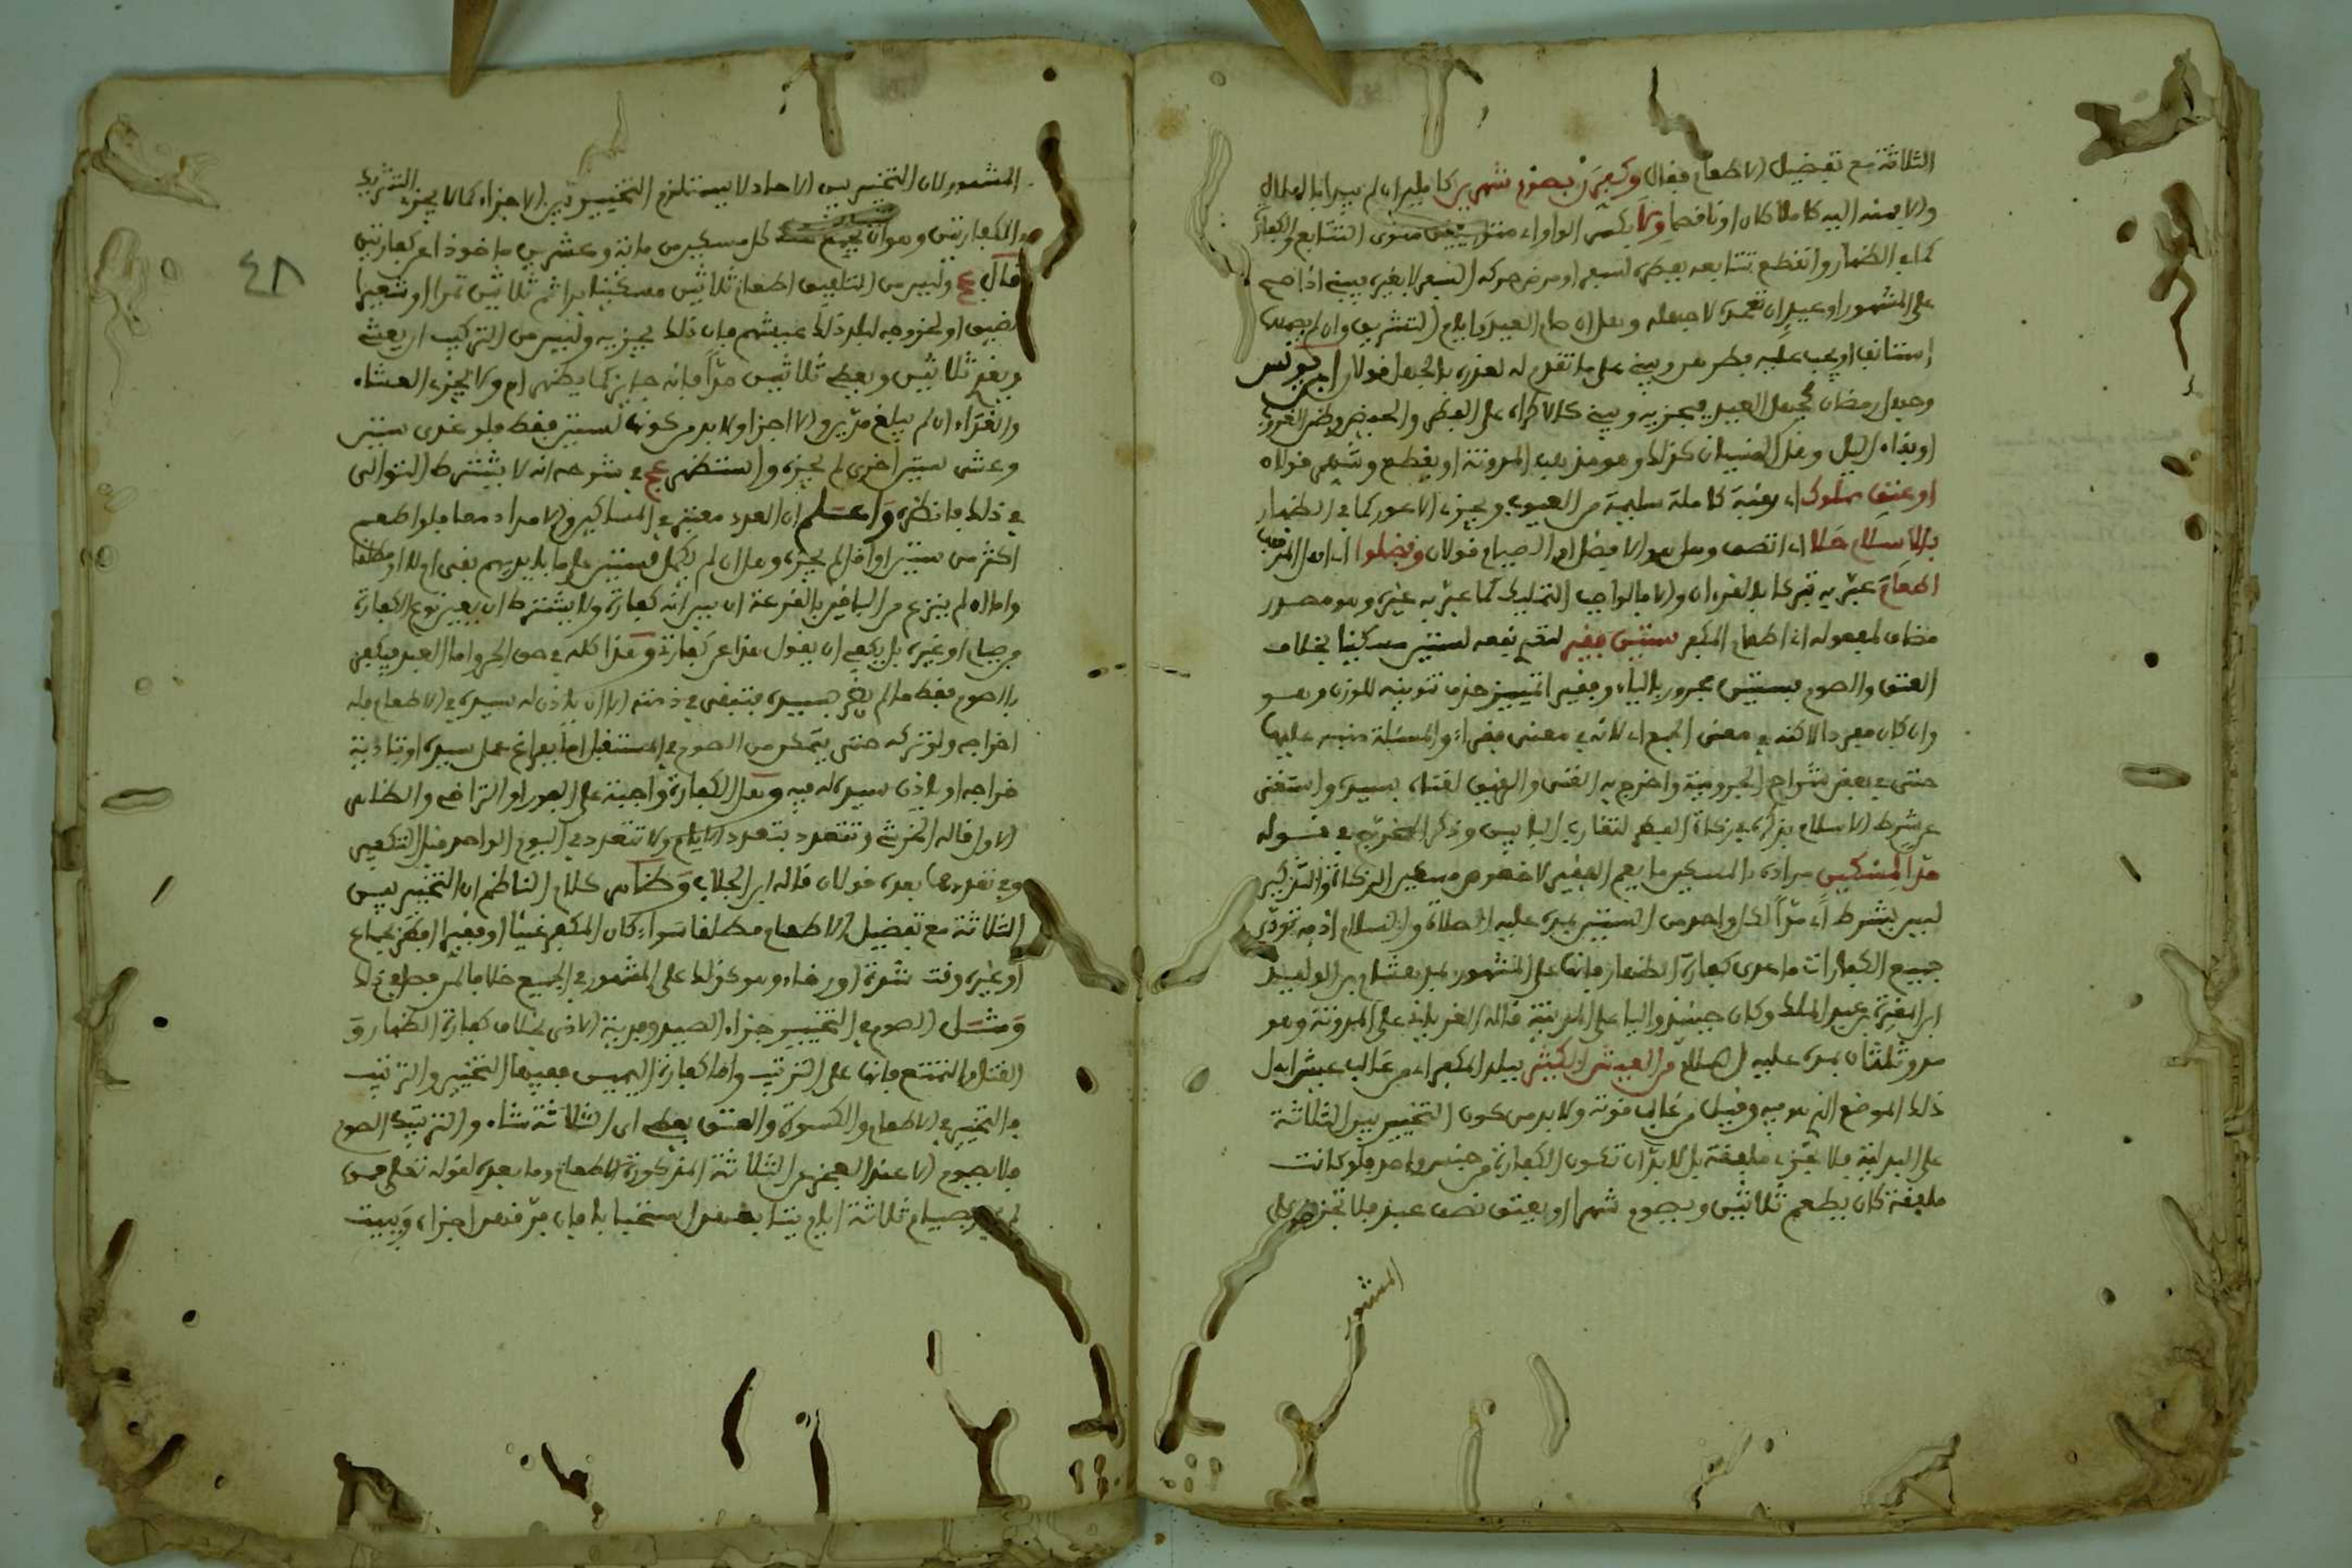 الثلاثة مع تفضيل الاطعام فقال وكفرن بصوم شهرين كاملين ان لم يبدا بالهلال
والا يمينه اليه كاملا كان او ناقصا ولا يكسر الواو اي منوي التتابع والكفارة
كما في الظهار وانقطع تتابعه بفطر لسفر او مرض حركه السفر لا بغير يمينه اذا صح
على المشهور او عيد ان تعمد لا جهله وهل ان صام العيد وايام التشريق وان لم يصمها
استانف او يجب عليه فطرهن ويبني على ما تقدم له لعذره بالجهل قولان ابن يونس
وجهل رمضان كجهل العيد فيجزيه ويبني كالاكراه على الفطر والحيض وظن الغروب
او بقاء الليل وهل النسيان كذلك وهو مذهب المدونة او يقطع وشهر قولان
او عتق مملوك اي رقبة كاملة سليمة من العيوب ويجزي الاعور كما في الظهار
بالاسلام حلا اي اتصف وهل هو الافضل او الصيام قولان وفضلوا اي اهل المذهب
اطعام عبر به تبركا بالقرءان والا فالواجب التمليك كما عبر به غيره وهو مصدر
مضاف لمفعوله اي اطعام المكفر ستين فقير لتعم نفعه لستين مسكينا بخلاف
العتق والصوم فستين مجرور بالياء وفقير التمييز حذف تنوينه للوزن وهو
وان كان مفردا لاكنه في معنى الجمع اي لانه في معنى فقراء والمسئلة منبه عليها
حتى في بعض شراح الجرومية واخرج به الغني والرقيق لغناه بسيده واستغنى
عن شرط الاسلام بذكره في زكاة الفطر لتقارب البابين وذكر المخرج في قوله
مدا لمسكين مراده بالمسكين ما يعم الفقير لا خصوص مسكين الزكاة والتذكير
ليس بشرط اي مدا لكل واحد من الستين بمده عليه الصلاة والسلام اذ به تؤدى
جميع الكفارات ما عدى كفارة الظهار فانها على المشهور بمد هشام بن الوليد
ابن المغيرة بن عبد الملك وكان حينئذ واليا على المدينة قاله الغرياني على المدونة وهو
مد وثلثان بمده عليه السلام من العيش الكثير ببلد المكفر اي من غالب عيش اهل
ذلك الموضع الذي هو فيه وقيل من غالب قوته ولا بد من كون التخيير بين الثلاثة
على البدلية فلا يجزي ملفقة بل لا بد ان تكون الكفارة من جنس واحد فلو كانت
ملفقة كان يطعم ثلاثين ويصوم شهرا او يعتق نصف عبد فلا تجزي على
المشهور
٤٨
المشهور لان التخيير بين الاحاد لا يستلزم التخيير بين الاجزاء كما لا يجزي التشريك
في الكفارتين وهو ان يطعم كل مسكين من مائة وعشرين ماخوذا عن كفارتين
قال عج وليس من التلفيق اطعام ثلاثين مسكينا برا ثم ثلاثين تمرا او شعيرا
لضيق او لخروجه لبلد ذلك عيشهم فان ذلك يجزيه وليس من التركيب اربعة
ويغد ثلاثين ويعطي ثلاثين مدا فانه جائز كما يظهر ام ولا يجزي العشاء
والغداء ان لم يبلغ مدين والا اجزا ولا بد من كونه لستين فقط فلو غدى ستين
وعشى ستين اخرى لم يجزه واستظهر عج في شرحه انه لا يشترط التوالي
في ذلك فانظره واعلم ان العدد معتبر في المساكين والامداد معا فلو اطعم
اكثر من ستين او اقل لم يجزه وهل ان لم يكمل لستين علم ما بايديهم بقي ام لا او مطلقا
واما لا لم ينزع من الباقين بالقرعة ان بين انه كفارة ولا يشترط ان يعين نوع الكفارة
من صيام او غيره بل يكفي ان يقول هذا عن كفارة وهذا كله في حق الحر واما العبد فيكفر
بالصوم فقط ما لم يضر بسيده فتبقى في ذمته الا ان ياذن له سيده في الاطعام فله
اخراجه ولو تركه حتى يتمكن من الصوم في المستقبل اما بفراغ عمل سيده او تادية
خراجه او باذن سيده له فيه وهل الكفارة واجبة على الفور او التراخي والظاهر
الاول قاله الخرشي وتتعدد بتعدد الايام ولا تتعدد في اليوم الواحد قبل التكفير
وفي تعددها بعده قولان قاله ابن الجلاب وظاهر كلام الناظم ان التخيير بين
الثلاثة مع تفضيل الاطعام مطلقا سواء كان المكفر غنيا او فقيرا افطر بجماع
او غيره وقت شدة او رخاء وهو كذلك على المشهور في الجميع خلافا لمن فصل في ذلك
ومثل الصوم في التخيير جزاء الصيد وفدية الاذى بخلاف كفارة الظهار و
القتل والتمتع فانها على الترتيب واما كفارة اليمين ففيها التخيير والترتيب
فالتخيير في الاطعام والكسوة والعتق يفعل اي الثلاثة شاء والترتيب في الصوم
فلا يصوم الا عند العجز عن الثلاثة المذكورة الاطعام وما بعده لقوله تعلى فمن
لم يجد فصيام ثلاثة ايام يتابعها استحبابا فان فرقهن اجزاه ويبيت